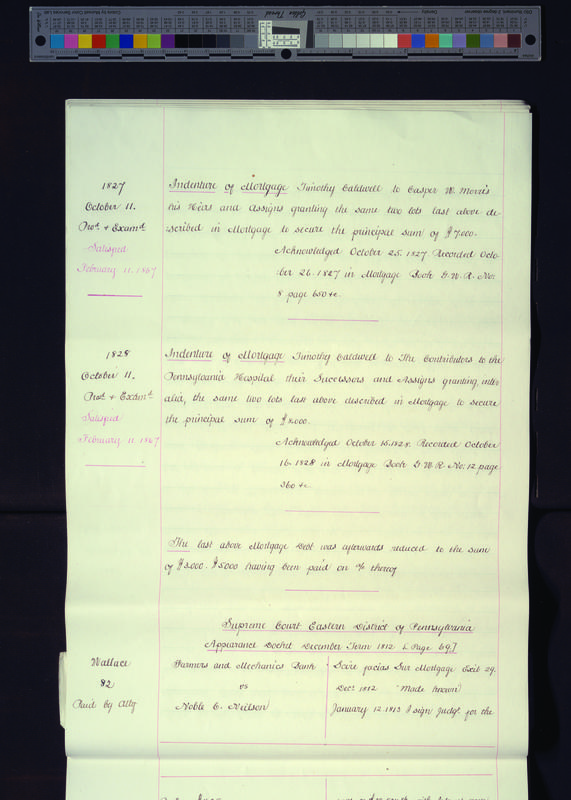 1827
October 11.
Prod. & Examd.
Satisfied
February 11. 1867
Indenture of Mortgage Timothy Caldwell to Casper W. Morris
his Heirs and Assigns granting the same two lots last above de-
scribed in Mortgage to secure the principal sum of $7,000.
Acknowledged October 25. 1827 Recorded Octo-
ber 26. 1827 in Mortgage Book G. W. R. No:
8 page 650 &c.
1828
October 11.
Prod. & Examd.
Satisfied
February 11. 1867
Indenture of Mortgage Timothy Caldwell to The Contributors to the
Pennsylvania Hospital their Successors and Assigns granting, inter
alia, the same two lots last above described in Mortgage to secure
the principal sum of $8.000.
Acknowledged October 15.1828. Recorded October
16. 1828 in Mortgage Book G W R No: 12 page
360 &c.
The last above Mortgage Debt was afterwards reduced to the sum
of $3.000. $5000 having been paid on % thereof
Supreme Court Eastern District of Pennsylvania
Appearance Docket December Term 1812 L Page 69.]
Wallace
82
Paid by Atty
Farmers and Mechanics Bank
vs
Noble C. Neilson
Scire facias Sur Mortgage Exit 29.
Decr. 1812 "Made known"
January 12.1813 I sign Judgt. for the